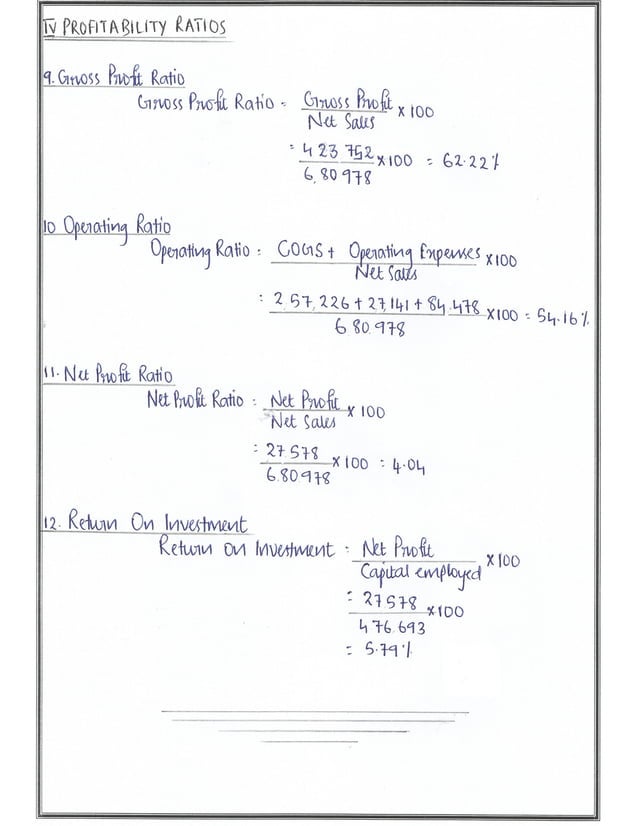 IV PROFITABILITY RATIOS
9. Gross Profit Ratio
Gross Profit Ratio = Gross Profit × 100
Net Sales
= 423 752 × 100 = 62.22%
6,80978
10 Operating Ratio
Operating Ratio = COGS + Operating Expenses × 100
Net Sales
= 257,226 + 27,141 + 84,478 × 100 = 54.16%
680978
11. Net Profit Ratio
Net Profit Ratio = Net Profit × 100
Net Sales
= 27578 × 100 = 4.04
6.80978
12. Return On Investment
Return on Investment = Net Profit × 100
Capital employed
= 27578 × 100
476.693
= 5.79%